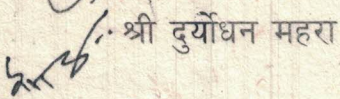 श्री दुर्योधन महरा